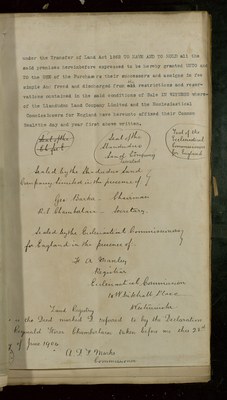 under the Transfer of Land Act 1862 TO HAVE AND TO HOLD all the
said premises hereinbefore expressed to be hereby granted UNTO and
TO THE USE of the Purchasers their successors and assigns in fee
simple And freed and discharged from all restrictions and reser-
vations contained in the said conditions of Sale IN WITNESS whereof
the Llandudno Land Company Limited and the Ecclesiastical
Commissioners for England have hereunto affixed their Common
Seals the day and year first above written,
Seal of the
Llandudno
Land Company
Limited
Seal of the
Ecclesiastical
Commissioners
for England
Sealed by the Llandudno Land
Company Limited in the presence of
Geo Chairman
Chamberlain Secretary.
Sealed by the Ecclesiastical Commissioners
for England in the presence of
Registrar
Ecclesiastical Commission
Whitehall Place
Westminster
Land Registry
is the Deed marked referred to by the Declaration
Reginald Chamberlain taken before me this 23rd
of June 1904
Commissioner